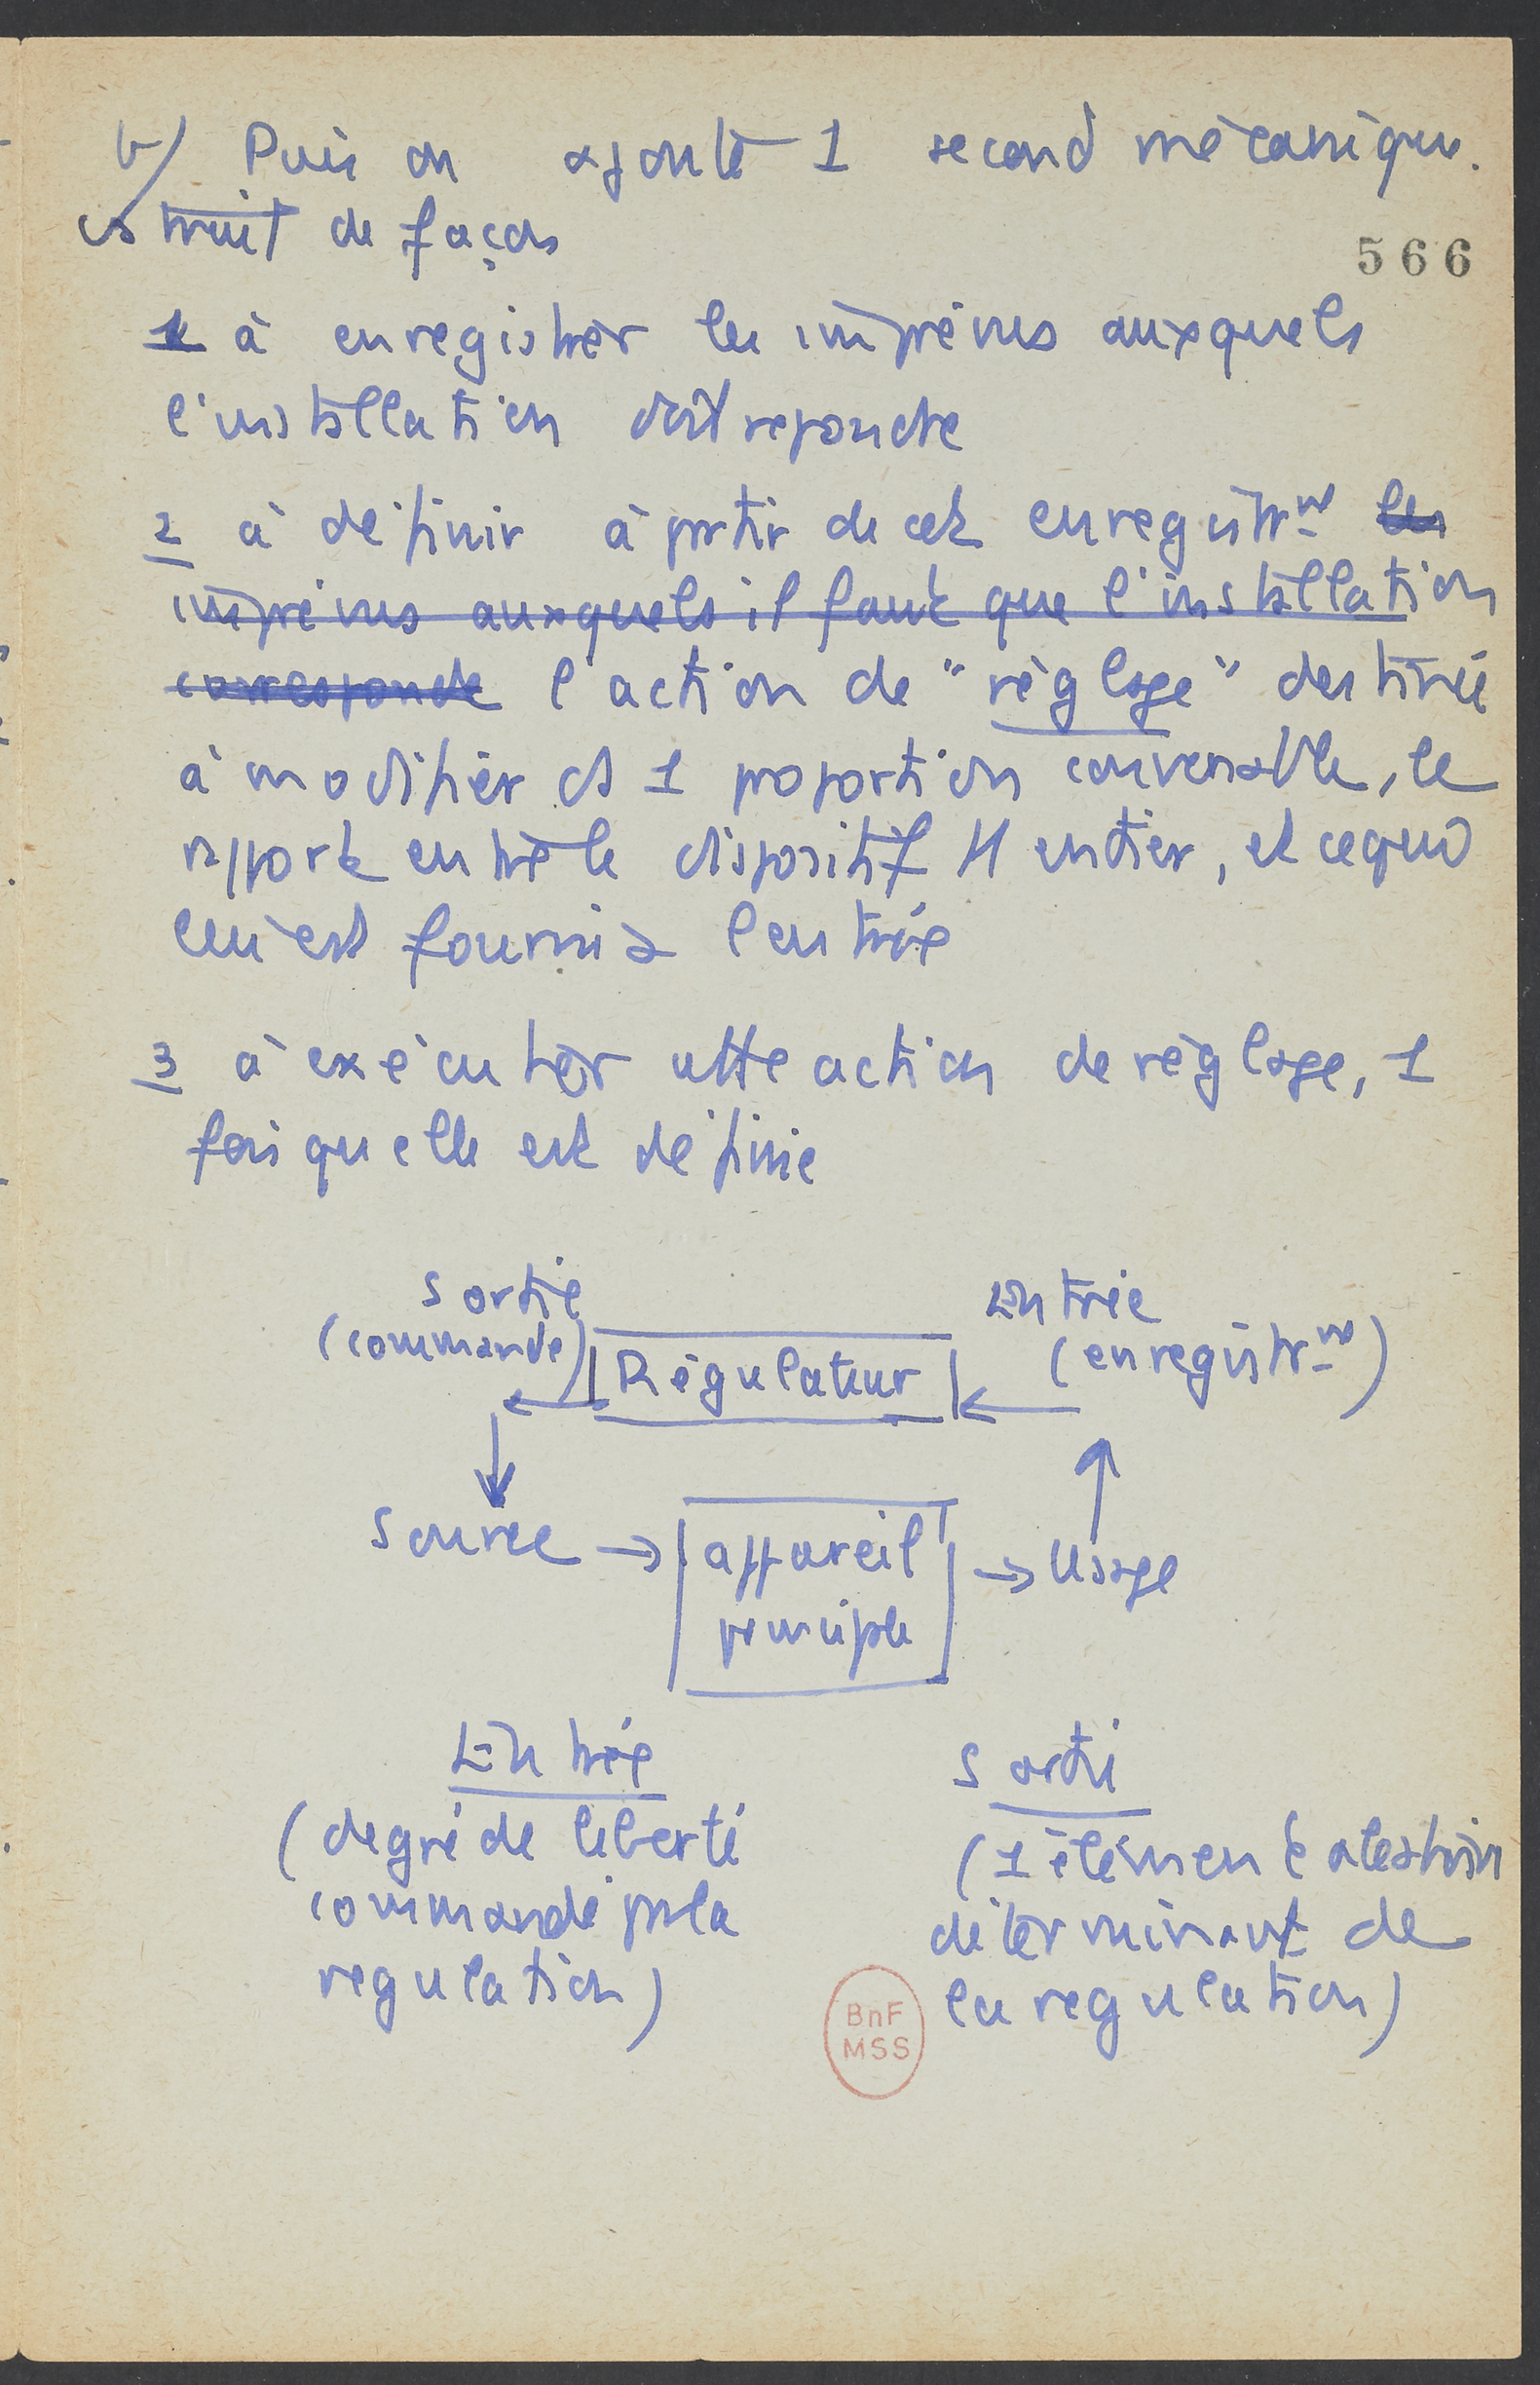 b/ Puis on ajoute 1 second mécanique.
cstruit de façon
566
1 à enregistrer les imprévus auxquels
l'installation doit repondre
2 à définir à partir de cet enregistrnt les
imprévus auxquels il faut que l'installation
corresponde l'action de "réglage" destinée
à modifier ds 1 proportion convenable, le
rapport entre le dispositif tt entier, et ce qui
lui est fourni à l'entrée
3 à exécuter cette action de réglage, 1
fois qu'elle est définie
Sortie
(commande)
Entrée
(enregistrnt)
Régulateur
Source → appareil → Usage
principle
Entrée
(degré de liberté
commandé par la
regulation)
Sortie
(1 élément aleatoire
déterminant de
la regulation)
BnF
MSS